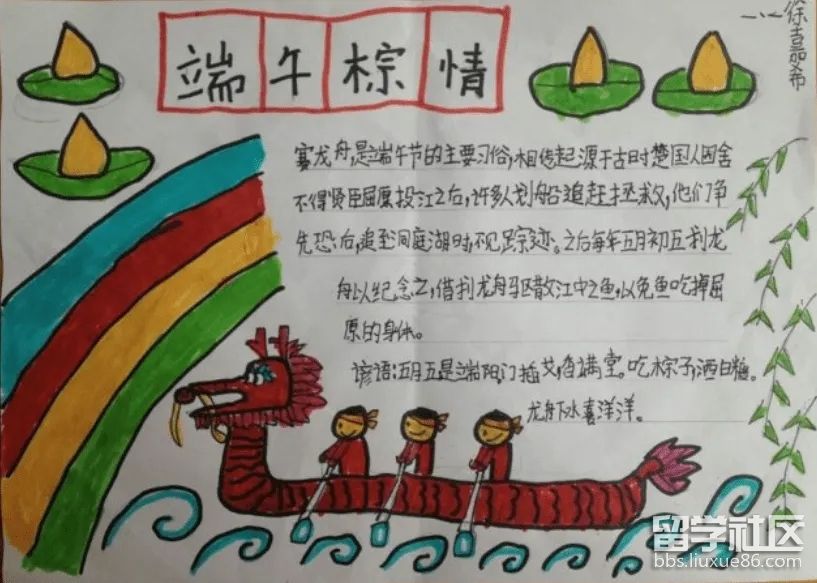 端午棕情
一、一徐嘉希
赛龙舟,是端午节的主要习俗,相传起源于古时楚国人因舍
不得贤臣屈原投江之后,许多人划船追赶拯救,他们争
先恐后,追至洞庭湖时,不见踪迹。之后每年五月初五划龙
舟以纪念之,借划龙舟驱散江中之鱼,以免鱼吃掉屈
原的身体。
谚语:五月五是端阳,门插艾,香满堂。吃棕子,洒白糖。
龙舟下水喜洋洋。
留学社区
bbs.liuxue86.com